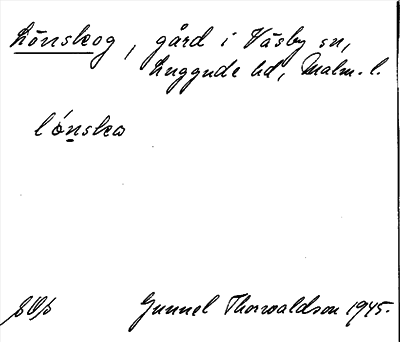 Lönskog, gård i Väsby sn,
Luggude hd, Malm. l.
lónska
Gunnel Thorwaldson 1945.